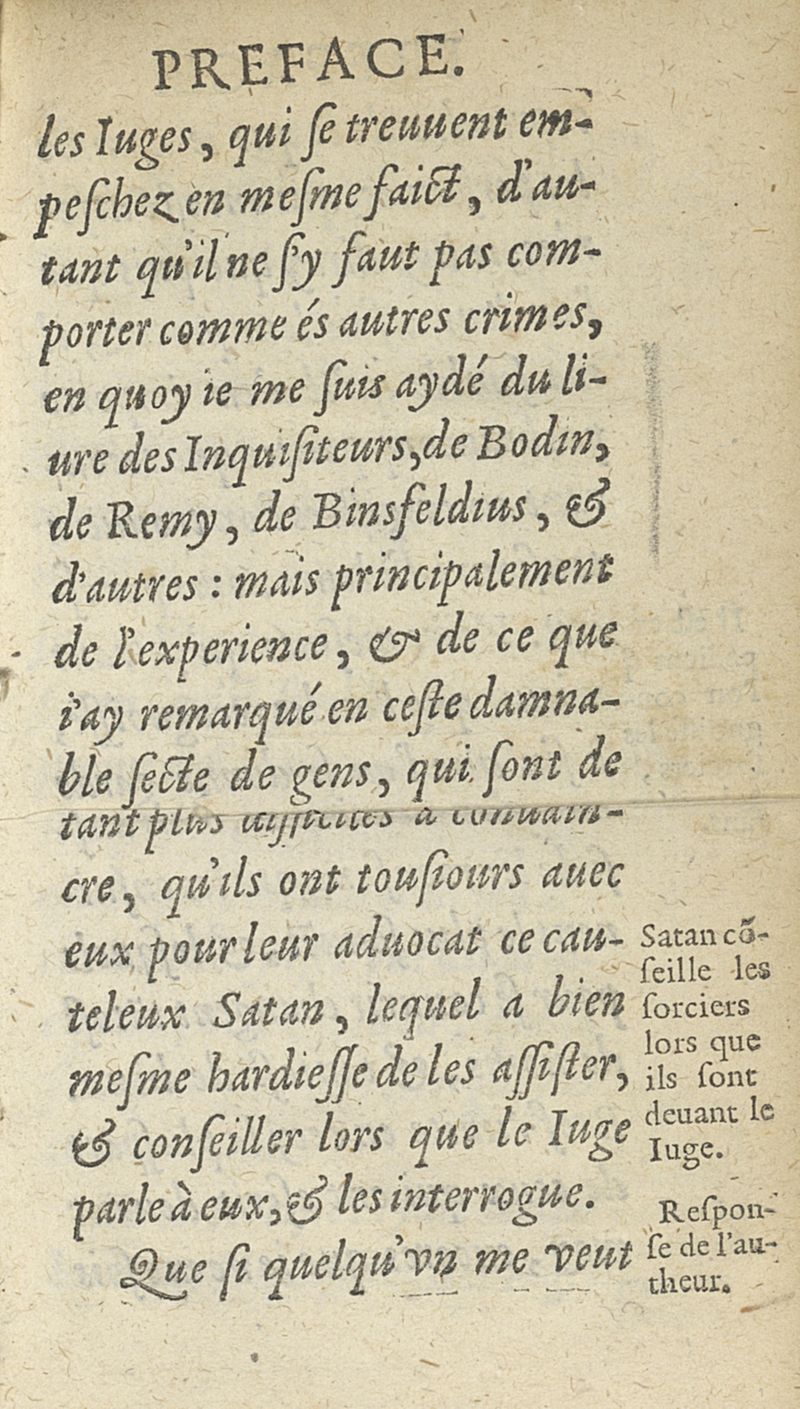 PREFACE.
les Iuges, qui ſe treuuent em-
peſchez en meſme faict, d'au-
tant qu'il ne ſ'y faut pas com-
porter comme és autres crimes,
en quoy ie me ſuis aydé du li-
ure des Inquiſiteurs, de Bodin,
de Remy, de Binsfeldius, &
d'autres : mais principalement
de l'experience, & de ce que
i'ay remarqué en ceſte damna-
ble ſecte de gens, qui ſont de
tant plus difficiles a conuain-
cre, qu'ils ont touſiours auec
eux pour leur aduocat ce cau-
teleux Satan, lequel a bien
meſme hardieſſe de les aſſiſter,
& conſeiller lors que le Iuge
parle à eux, & les interrogue.
Que ſi quelqu'vn me veut
Satan cõ-
ſeille les
ſorciers
lors que
ils ſont
deuant le
Iuge.
Reſpon-
ſe de l'au-
theur.